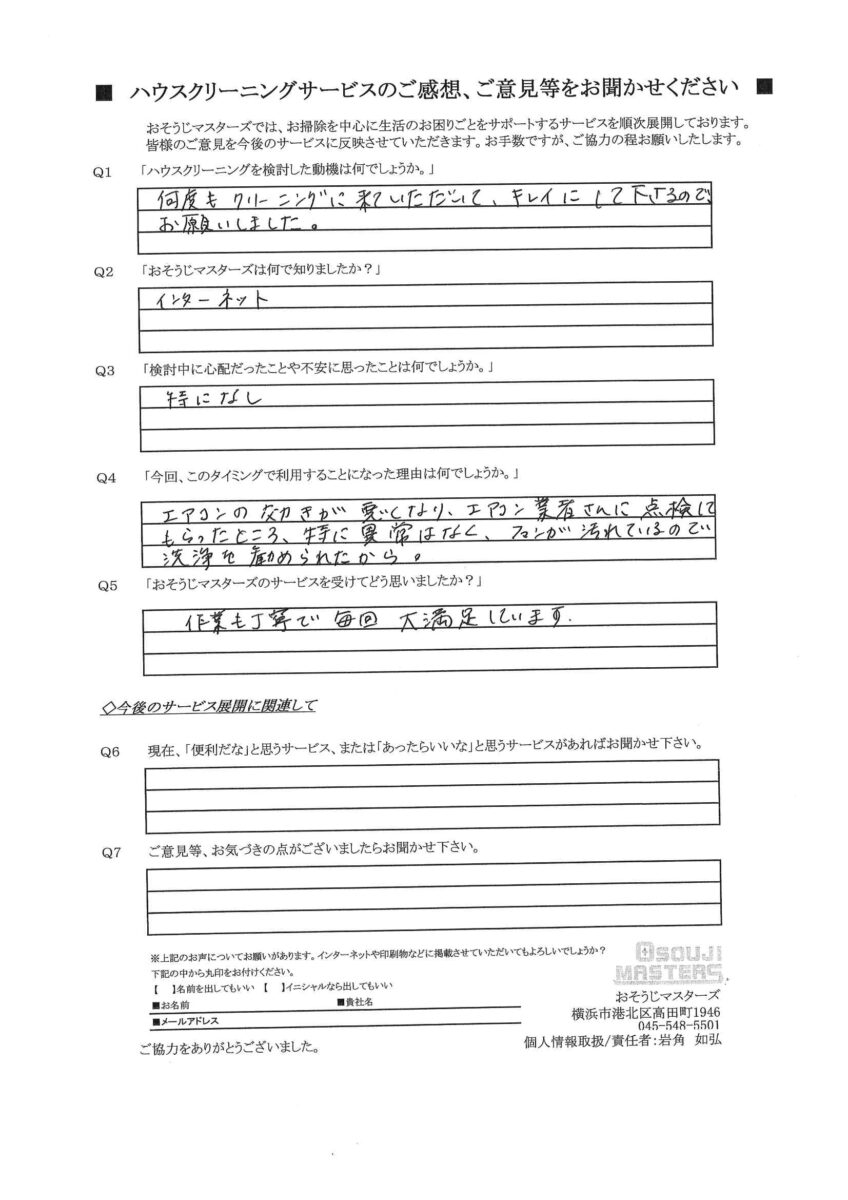 ■ ハウスクリーニングサービスのご感想、ご意見等をお聞かせください ■
おそうじマスターズでは、お掃除を中心に生活のお困りごとをサポートするサービスを順次展開しております。
皆様のご意見を今後のサービスに反映させていただきます。お手数ですが、ご協力の程お願いしたします。
Q1 「ハウスクリーニングを検討した動機は何でしょうか。」
何度もクリーニングに来ていただいて、キレイにして下さるので、
お願いしました。
Q2 「おそうじマスターズは何で知りましたか？」
インターネット
Q3 「検討中に心配だったことや不安に思ったことは何でしょうか。」
特になし
Q4 「今回、このタイミングで利用することになった理由は何でしょうか。」
エアコンの効きが悪くなり、エアコン業者さんに点検して
もらったところ、特に異常はなく、ファンが汚れているので
洗浄を勧められたから。
Q5 「おそうじマスターズのサービスを受けてどう思いましたか？」
作業も丁寧で毎回大満足しています。
◇今後のサービス展開に関連して
Q6 現在、「便利だな」と思うサービス、または「あったらいいな」と思うサービスがあればお聞かせ下さい。
Q7 ご意見等、お気づきの点がございましたらお聞かせ下さい。
※上記のお声についてお願いがあります。インターネットや印刷物などに掲載させていただいてもよろしいでしょうか？
下記の中から丸印をお付けください。
【 】名前を出してもいい 【 】イニシャルなら出してもいい
■お名前 ■貴社名
■メールアドレス
ご協力をありがとうございました。
OSOUJI
MASTERS
おそうじマスターズ
横浜市港北区高田町1946
045-548-5501
個人情報取扱/責任者:岩角 如弘